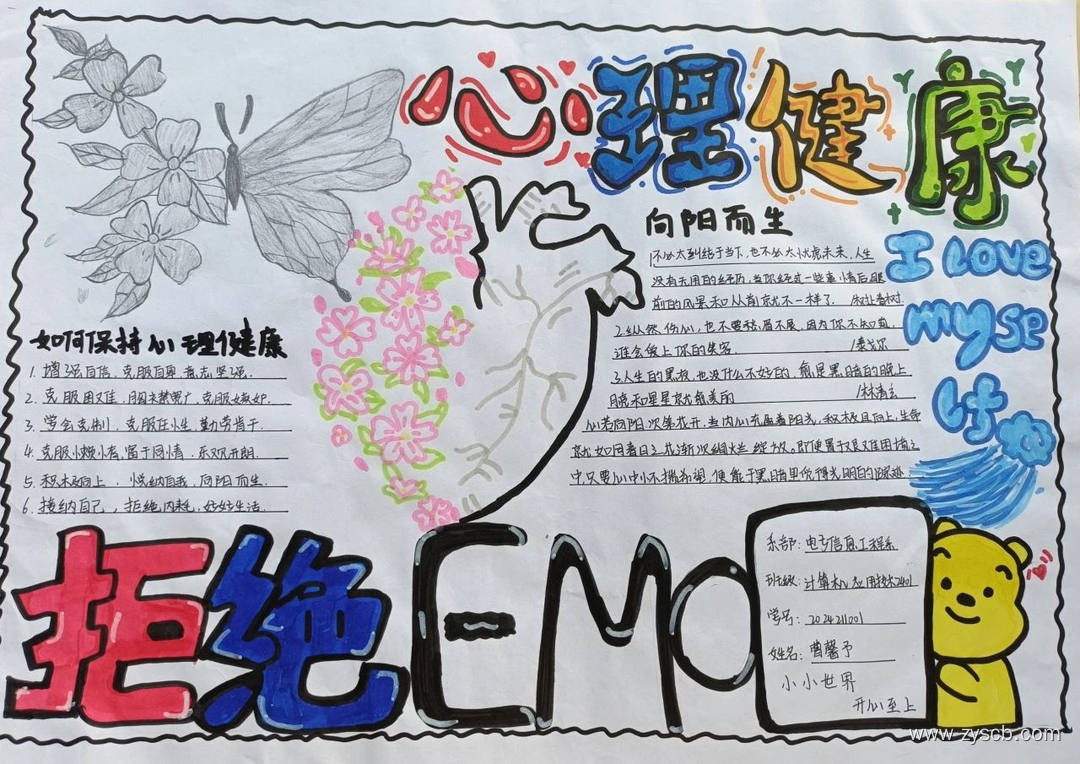 心理健康
向阳而生
1不必太纠结于当下,也不必太忧虑未来,人生
没有无用的经历,当你经过一些事情后,眼
前的风景和从前就不一样了. /村上春树
2.纵然伤心,也不要愁眉不展,因为你不知道,
谁会爱上你的笑容. /泰戈尔
3.人生的黑夜也没什么不好的,
晚和星星就能美的 /林清玄
心若向阳,次第花开,当内心充盈着阳光,积极且向上,生命
就如同春日之花,渐次绚烂绽放.即便置于艰难困境之
中,只要心中怀揣希望,便能于黑暗里觅得光明的踪迹
I Love
myse
lf
如何保持心理健康
1. 增强自信,克服自卑,意志坚强.
2. 克服困难,胸襟宽广,克服嫉妒.
3. 学会克制,克服任性,勤劳肯干.
4. 克服小烦小恼,富于同情,乐观开朗.
5. 积极向上,悦纳自我,向阳而生.
6. 接纳自己,拒绝内耗,好好生活.
拒绝EMO
系部:电子信息工程系
班级:计算机应用技术2401
学号:2024211001
姓名:曹馨予
小小世界
开心至上
www.zyscb.com